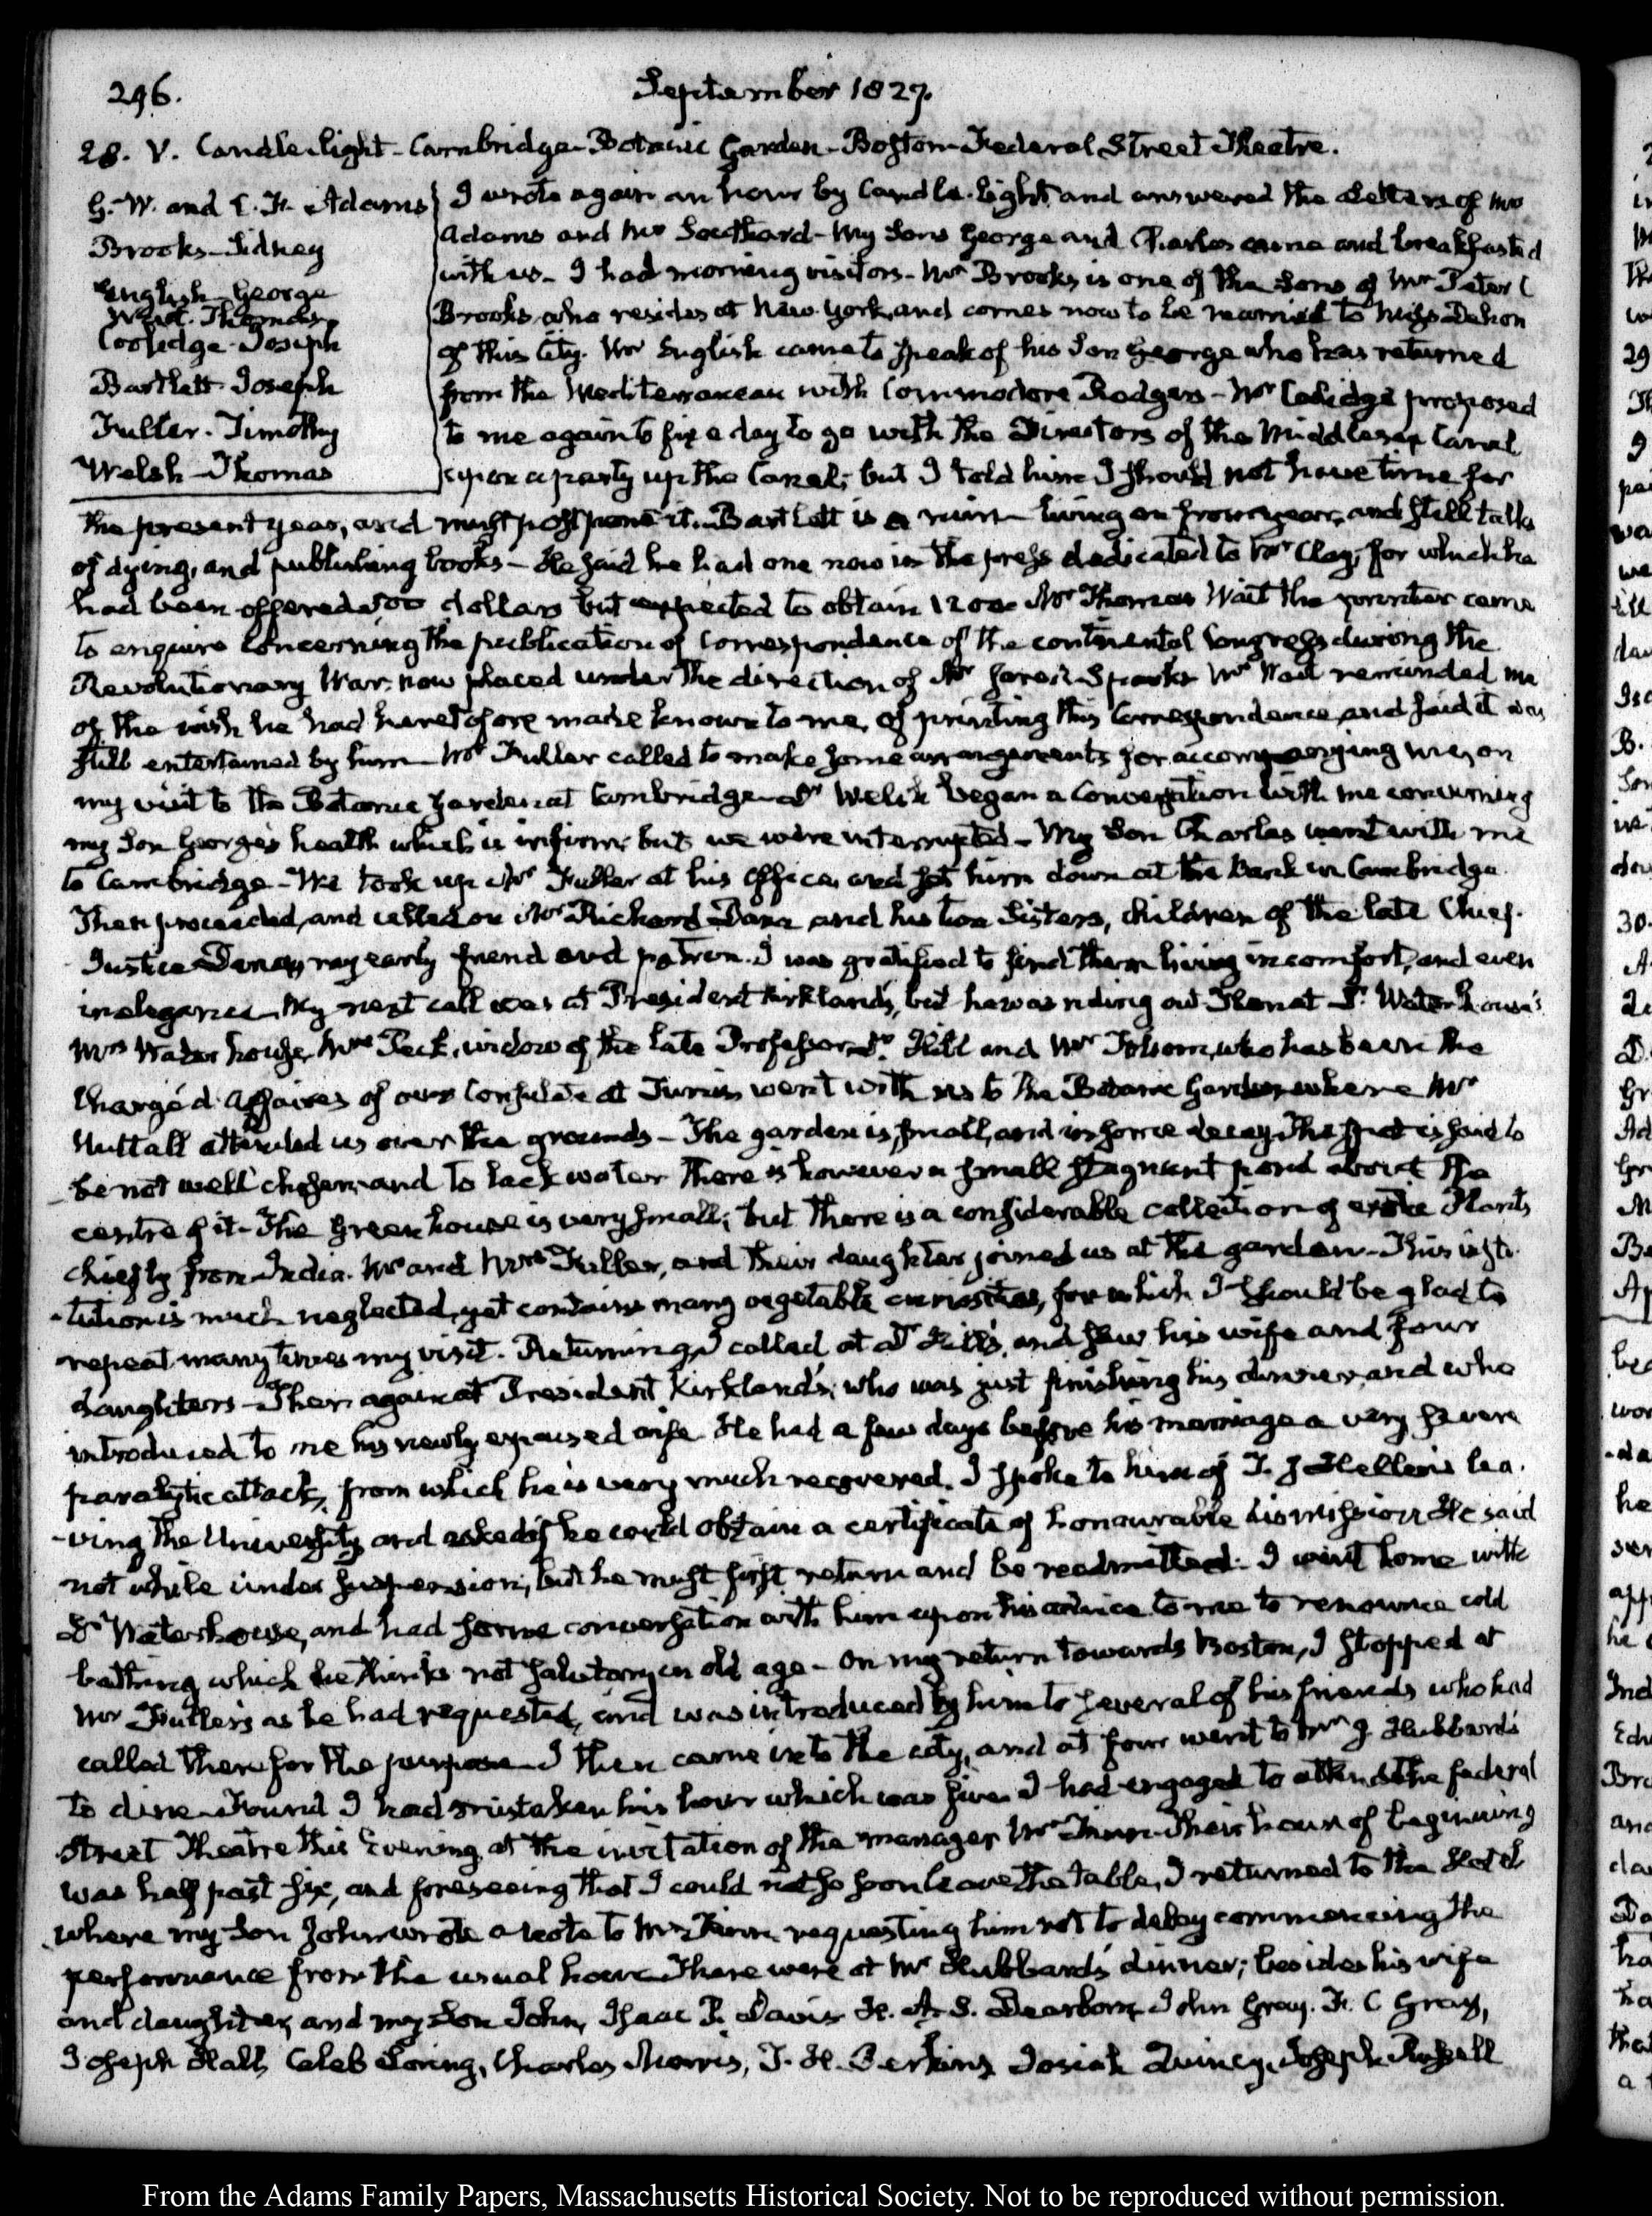 296.
September 1827.
28. V. Candle-light - Cambridge - Botanic Garden - Boston - Federal Street Theatre.
G. W. and C. F. Adams
Brooks - Sidney
English - George
Wait. Thomas
Coolidge - Joseph
Bartlett - Joseph
Fuller - Timothy
Welsh - Thomas
I wrote again an hour by Candle-light and answered the Letters of Mrs
Adams and Mr Southard - My Sons George and Charles came and breakfasted
with us - I had morning visitors - Mr Brooks is one of the Sons of Mr Peter C
Brooks who resides at New-York, and comes now to be married to Miss Dehon
of this City. Mr English came to speak of his Son George who has returned
from the Mediterranean with Commodore Rodgers - Mr Coolidge proposed
to me again to fix a day to go with the Directors of the Middlesex Canal
upon a party up the Canal; but I told him I should not have time for
the present year, and must postpone it. Bartlett is a ruin living on from year, and still talks
of dying, and publishing books - He said he had one now in the press dedicated to Mr Clay, for which he
had been offered 500 dollars but expected to obtain 1200 Mr Thomas Wait the printer came
to enquire concerning the publication of Correspondence of the continental Congress during the
Revolutionary War, now placed under the direction of Mr Jared Sparks Mr Wait reminded me
of the wish he had heretofore made known to me, of printing this Correspondence and said it was
still entertained by him - Mr Fuller called to make some arrangements for accompanying me, on
my visit to the Botanic Garden at Cambridge - Dr Welsh began a Conversation with me concerning
my Son George's health which is infirm; but we were interrupted - My Son Charles went with me
to Cambridge - We took up Mr Fuller at his Office, and set him down at the Bank in Cambridge.
Then proceeded, and called on Mr Richard Dana and his two Sisters, children of the late Chief-
Justice Dana, my early friend and patron. I was gratified to find them living in comfort, and even
in elegance. My next call was at President Kirkland's, but he was riding out Then at Dr Waterhouse's
Mrs Waterhouse, Mrs Peck, widow of the late Professor, Dr Hill and Mr Folsom, who has been the
Chargé d'Affaires of our Consulate at Tunis went with us to the Botanic Garden where Mr
Nuttall attended us over the grounds - The garden is small, and in some decay The spot is said to
be not well chosen, and to lack water There is however a small stagnant pond about the
centre of it - The Green house is very small; but there is a considerable collection of exotic Plants
chiefly from India. Mr and Mrs Fuller, and their daughter joined us at the garden - This insti-
-tution is much neglected, yet contains many vegetable curiosities, for which I should be glad to
repeat many times my visit. Returning, I called at Dr Hill's, and saw his wife and four
daughters - Then again at President Kirkland's, who was just finishing his dinner, and who
introduced to me his newly espoused wife He had a few days before his marriage a very severe
paralytic attack, from which he is very much recovered. I spoke to him of T. J Hellen's lea-
-ving the University and asked if he could obtain a certificate of honourable dismission He said
not while under suspension; but he must first return and be readmitted. I went home with
Dr Waterhouse, and had some conversation with him upon his advice to me to renounce cold
bathing which he thinks not salutary in old age - On my return towards Boston, I stopped at
Mr Fuller's as he had requested, and was introduced by him to several of his friends who had
called there for the purpose I then came into the city, and at four went to Mr J. Hubbard's
to dine - Found I had mistaken his hour which was five I had engaged to attend the federal
Street Theatre this Evening, at the invitation of the manager Mr Finn. Their hour of beginning
was half past six, and foreseeing that I could not so soon leave the table, I returned to the Hotel
where my Son John wrote a note to Mr Finn requesting him not to delay commencing the
performance from the usual hour There were at Mr Hubbard's dinner; besides his wife
and daughter, and my Son John, Isaac P. Davis H. A. S. Dearborn John Gray. F. C Gray,
Joseph Hall, Caleb Loring, Charles Morris, T. H. Perkins Josiah Quincy, Joseph Russell
From the Adams Family Papers, Massachusetts Historical Society. Not to be reproduced without permission.